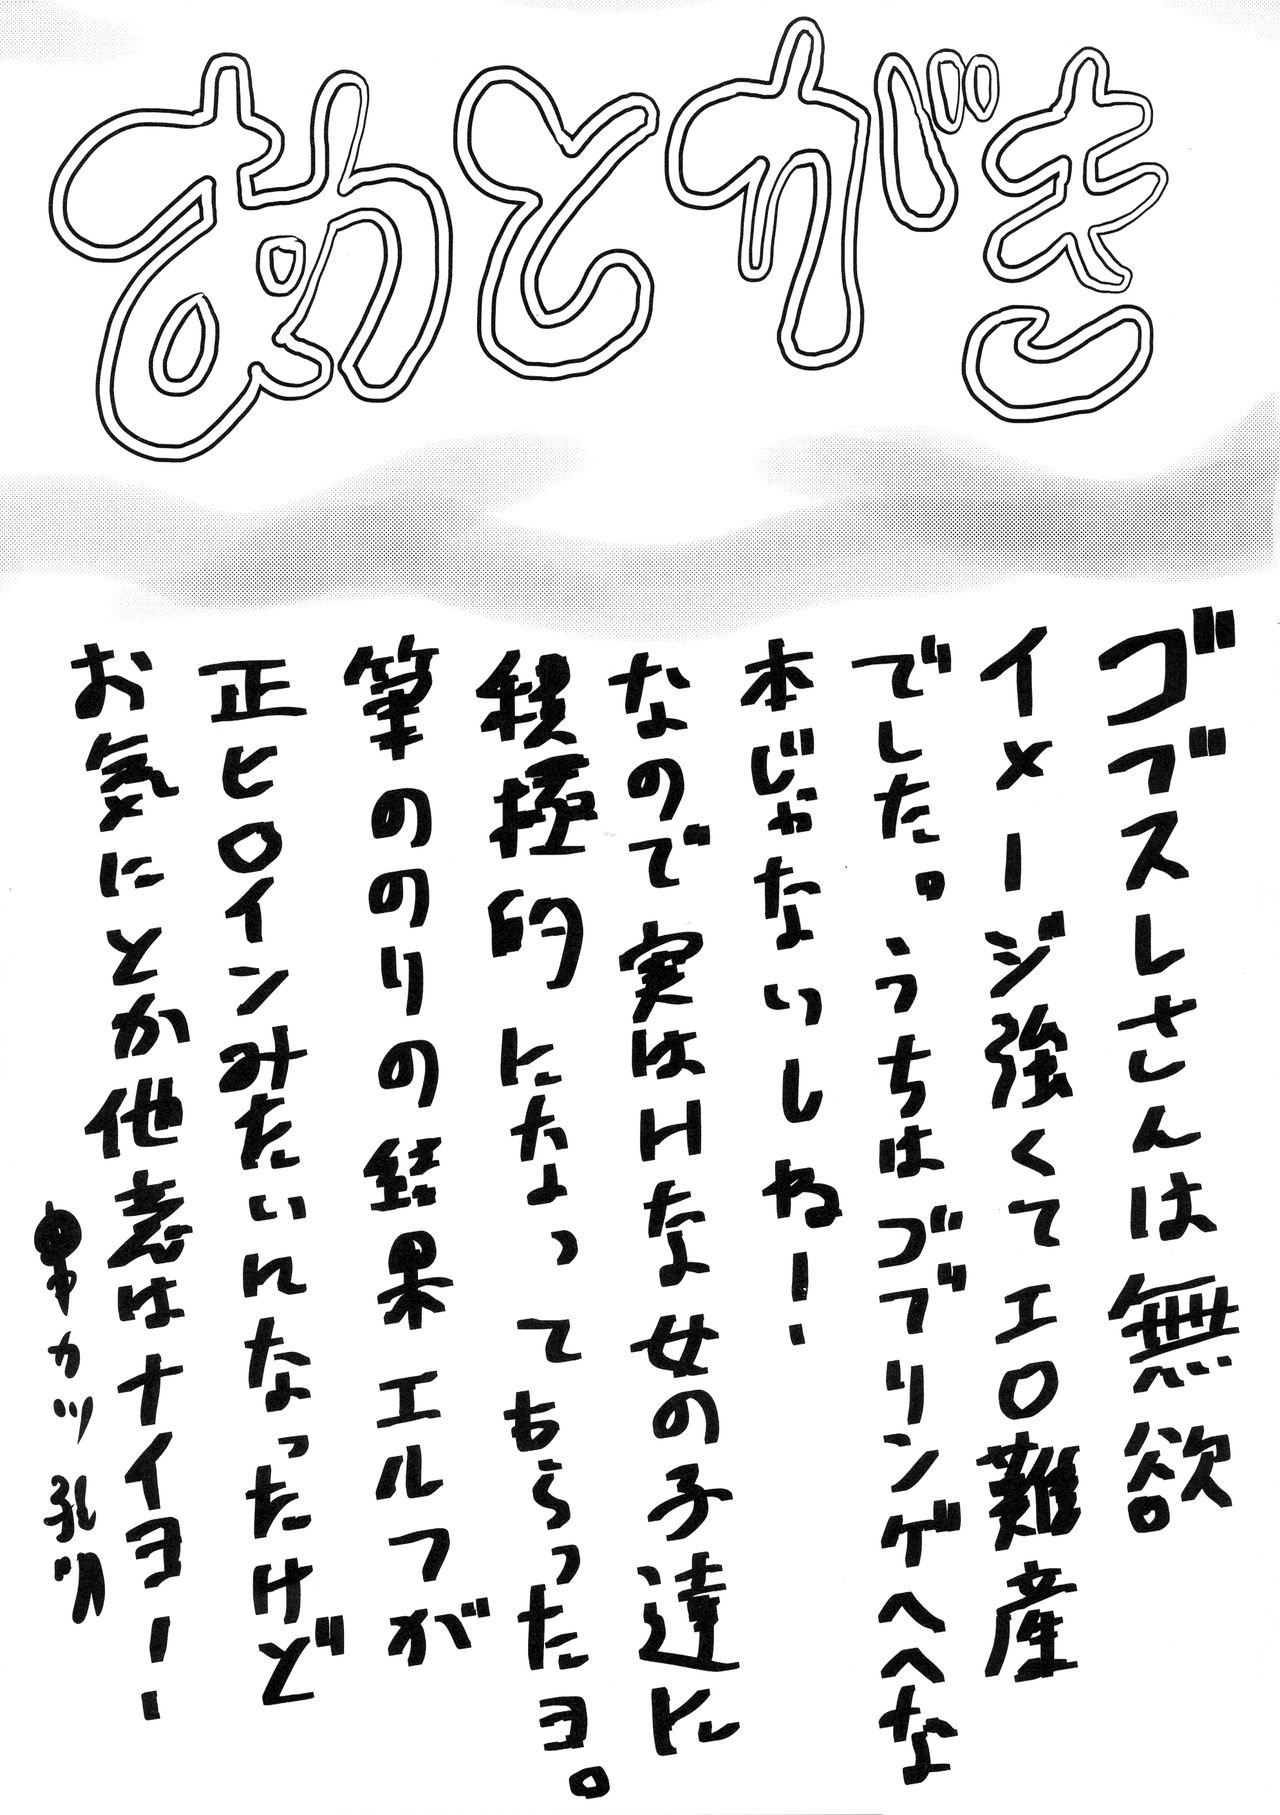 あとがき
ゴブスレさんは無欲
イメージ強くてエロ難産
でした。うちはゴブリンゲヘヘな
本じゃないしね！
なので実はHな女の子達に
積極的になってもらったヨ。
筆ののりの結果エルフが
正ヒロインみたいになったけど
お気にとか他意はナイヨー！
カツ